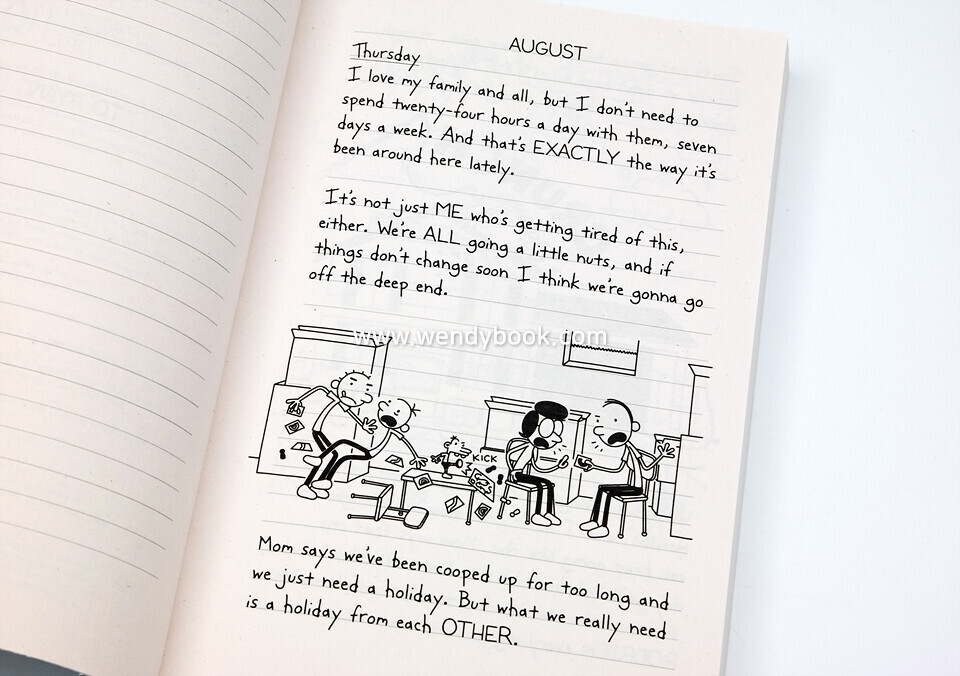 AUGUST
Thursday
I love my family and all, but I don't need to
spend twenty-four hours a day with them, seven
days a week. And that's EXACTLY the way it's
been around here lately.
It's not just ME who's getting tired of this,
either. We're ALL going a little nuts, and if
things don't change soon I think we're gonna go
off the deep end.
www.wendybook.com
KICK
Mom says we've been cooped up for too long and
we just need a holiday. But what we really need
is a holiday from each OTHER.